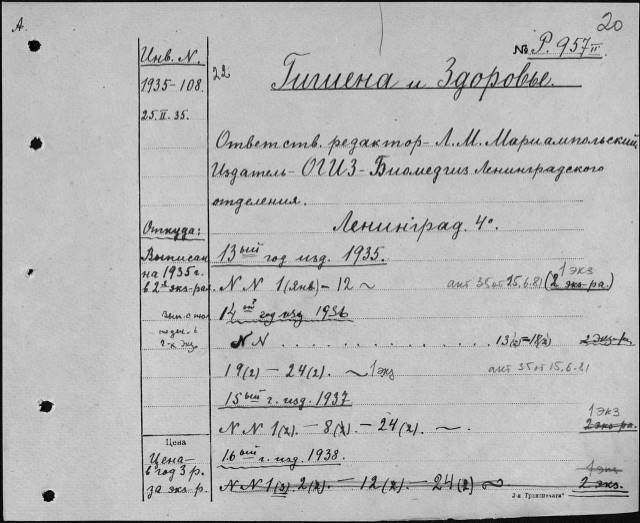 A.
20
№ P. 957 II.
Инв. N.
1935-108.
25.II.35.
22
Гигиена и Здоровье.
Ответств. редактор - Л.М. Мариампольский.
Издатель - ОГИЗ - Биомедгиз Ленинградского
отделения.
Ленинград. 4°.
Откуда:
Выписан
на 1935 г.
в 2х экз-рах
13ый год изд. 1935.
1 экз
N N 1 (янв) - 12 ~ акт 35 от 15.6.81 (2 экз-ра.)
14ый год изд 1936
N N . . . . . . . . . . . . 13(2) = 18(2) 2 экз-ра
19(2) - 24(2). ~ 1 экз акт 35 от 15.6.81
15ый г. изд. 1937
1 экз
N N 1(2). - 8(2) - 24(2). ~. 2 экз-ра.
Цена
Цена -
в год 3 р.
за экз. р.
16ый г. изд. 1938.
1 экз
N N 1(3) 2(2). - 12(2) - 24(2) ~ 2 экз.